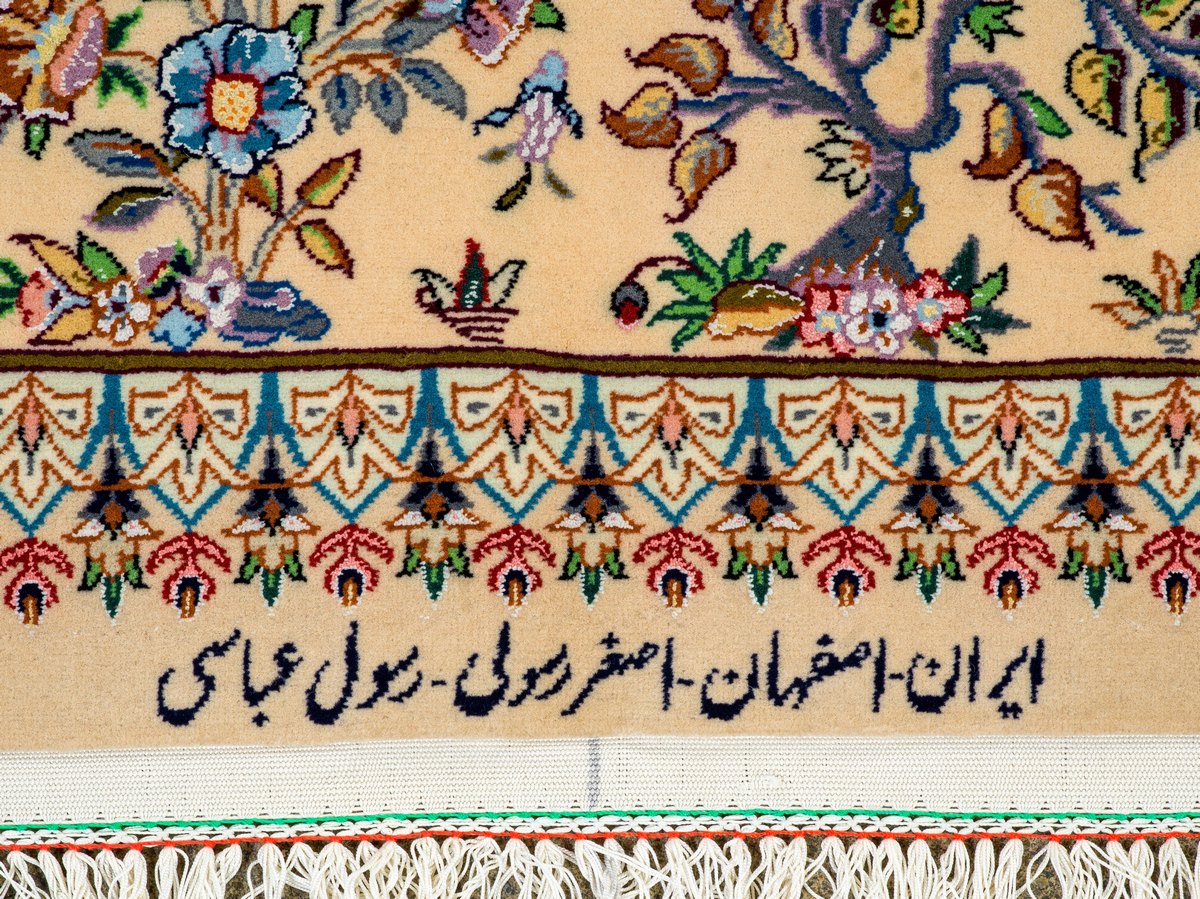 ایران - اصفهان - اصغر رسولی - رسول عباسی